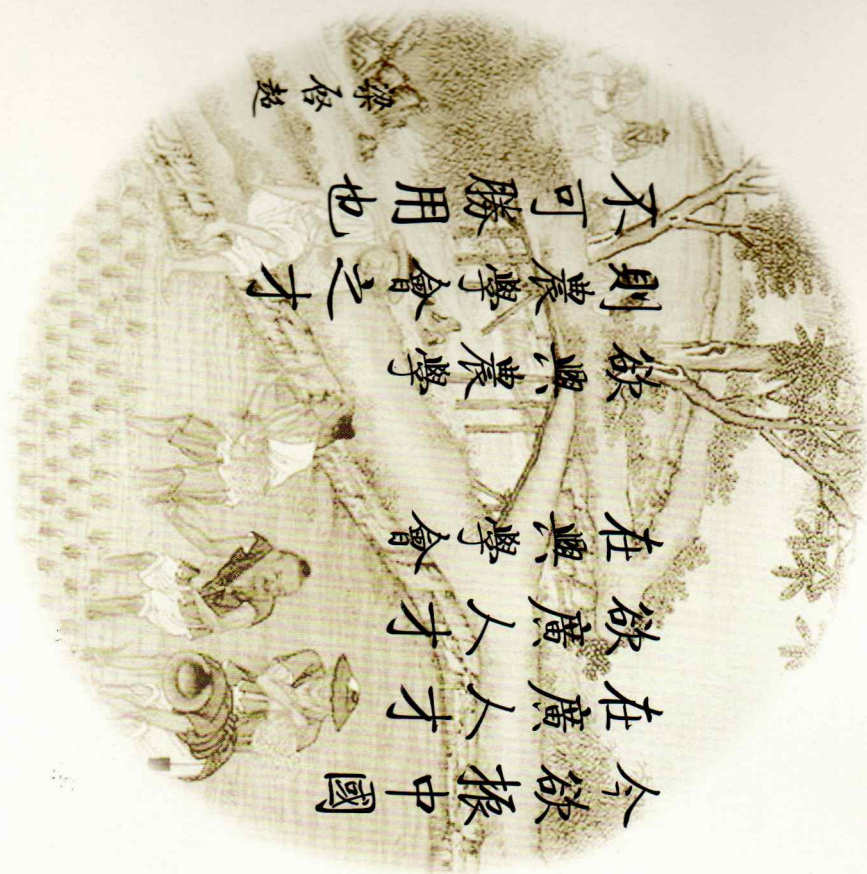 今欲振中國
在廣人才
欲廣人才
在興學會
欲興農學
則農學會之才
不可勝用也
梁啓超